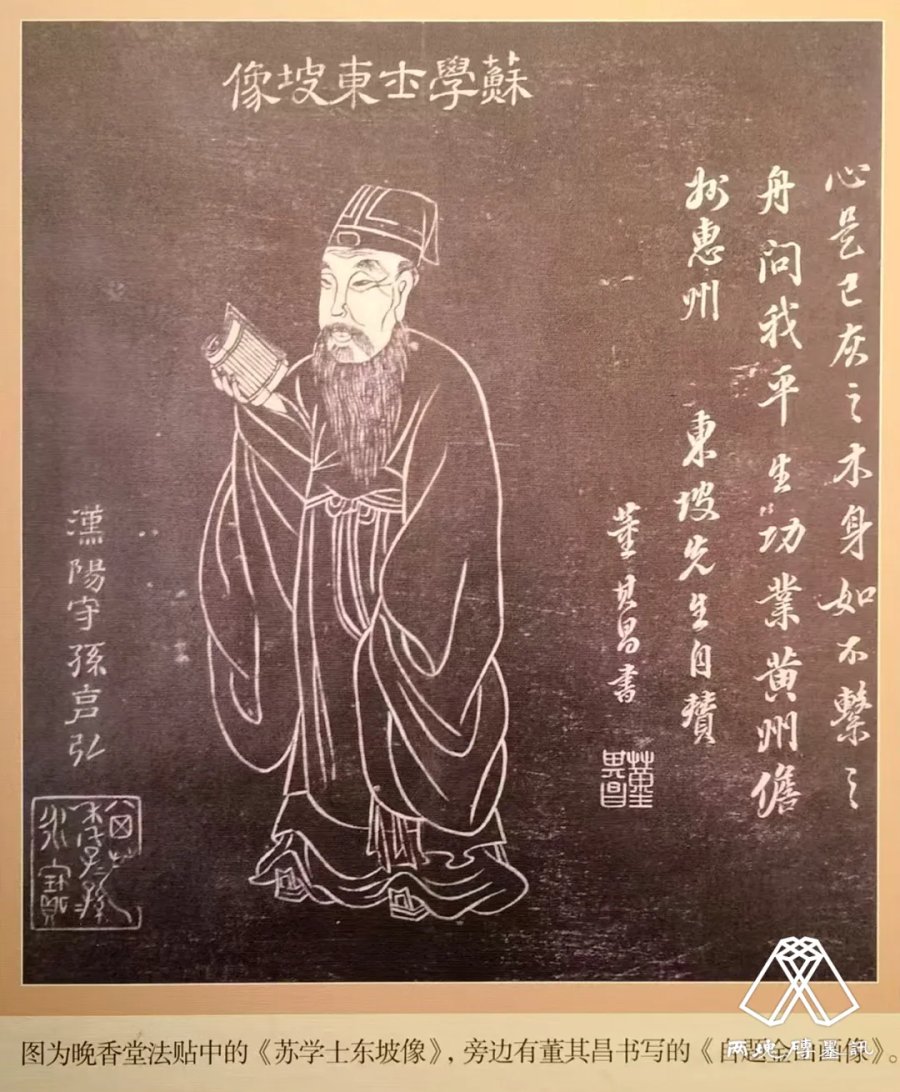 蘇學士東坡像
心是已灰之木身如不繫之
舟問我平生功業黄州儋
州惠州 東坡先生自贊
董其昌書
董其昌
漢陽守孫克弘
图为晚香堂法贴中的《苏学士东坡像》，旁边有董其昌书写的《自题金山画像》。
两塊磚墨訊